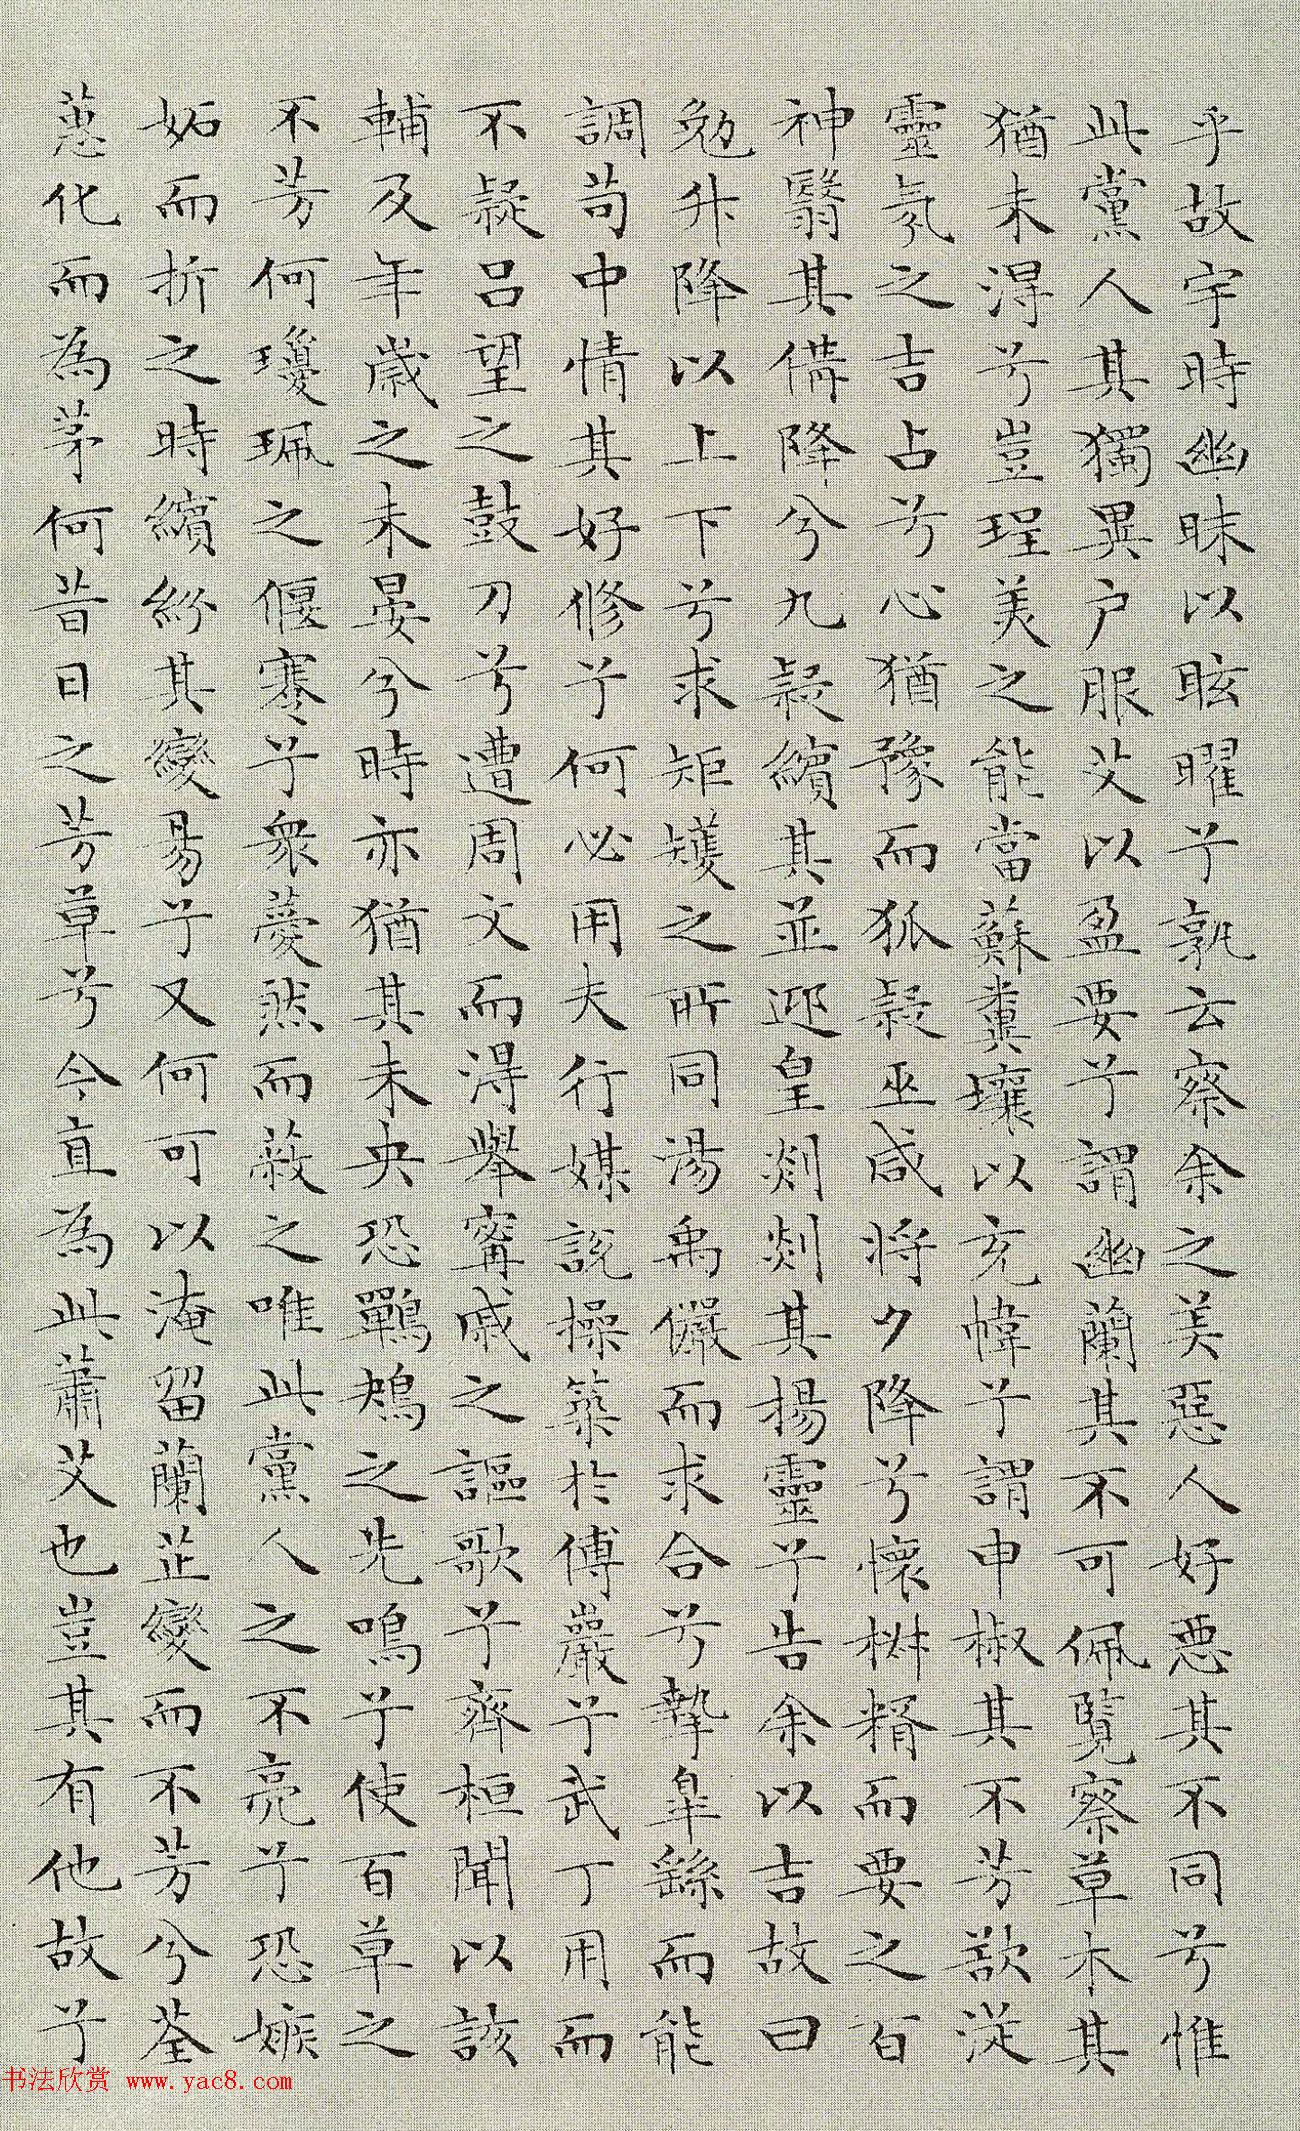 乎故宇時幽昧以眩曜兮孰云察余之美惡人好惡其不同兮惟
此黨人其獨異户服艾以盈要兮謂幽蘭其不可佩覽察草木其
猶未得兮豈珵美之能當蘇糞壤以充幃兮謂申椒其不芳欲從
靈氛之吉占兮心猶豫而狐疑巫咸將夕降兮懷椒糈而要之百
神翳其備降兮九疑繽其並迎皇剡剡其揚靈兮告余以吉故曰
勉升降以上下兮求矩矱之所同湯禹儼而求合兮摯皐繇而能
調苟中情其好修兮何必用夫行媒說操築於傅巖兮武丁用而
不疑呂望之鼓刀兮遭周文而得舉甯戚之謳歌兮齊桓聞以該
輔及年歲之未晏兮時亦猶其未央恐鶗鴂之先鳴兮使百草之
不芳何瓊珮之偃蹇兮衆薆然而蔽之唯此黨人之不亮兮恐嫉
妬而折之時繽紛其變易兮又何可以淹留蘭芷變而不芳兮荃
蕙化而為茅何昔日之芳草兮今直為此蕭艾也豈其有他故兮
书法欣赏 www.yac8.com